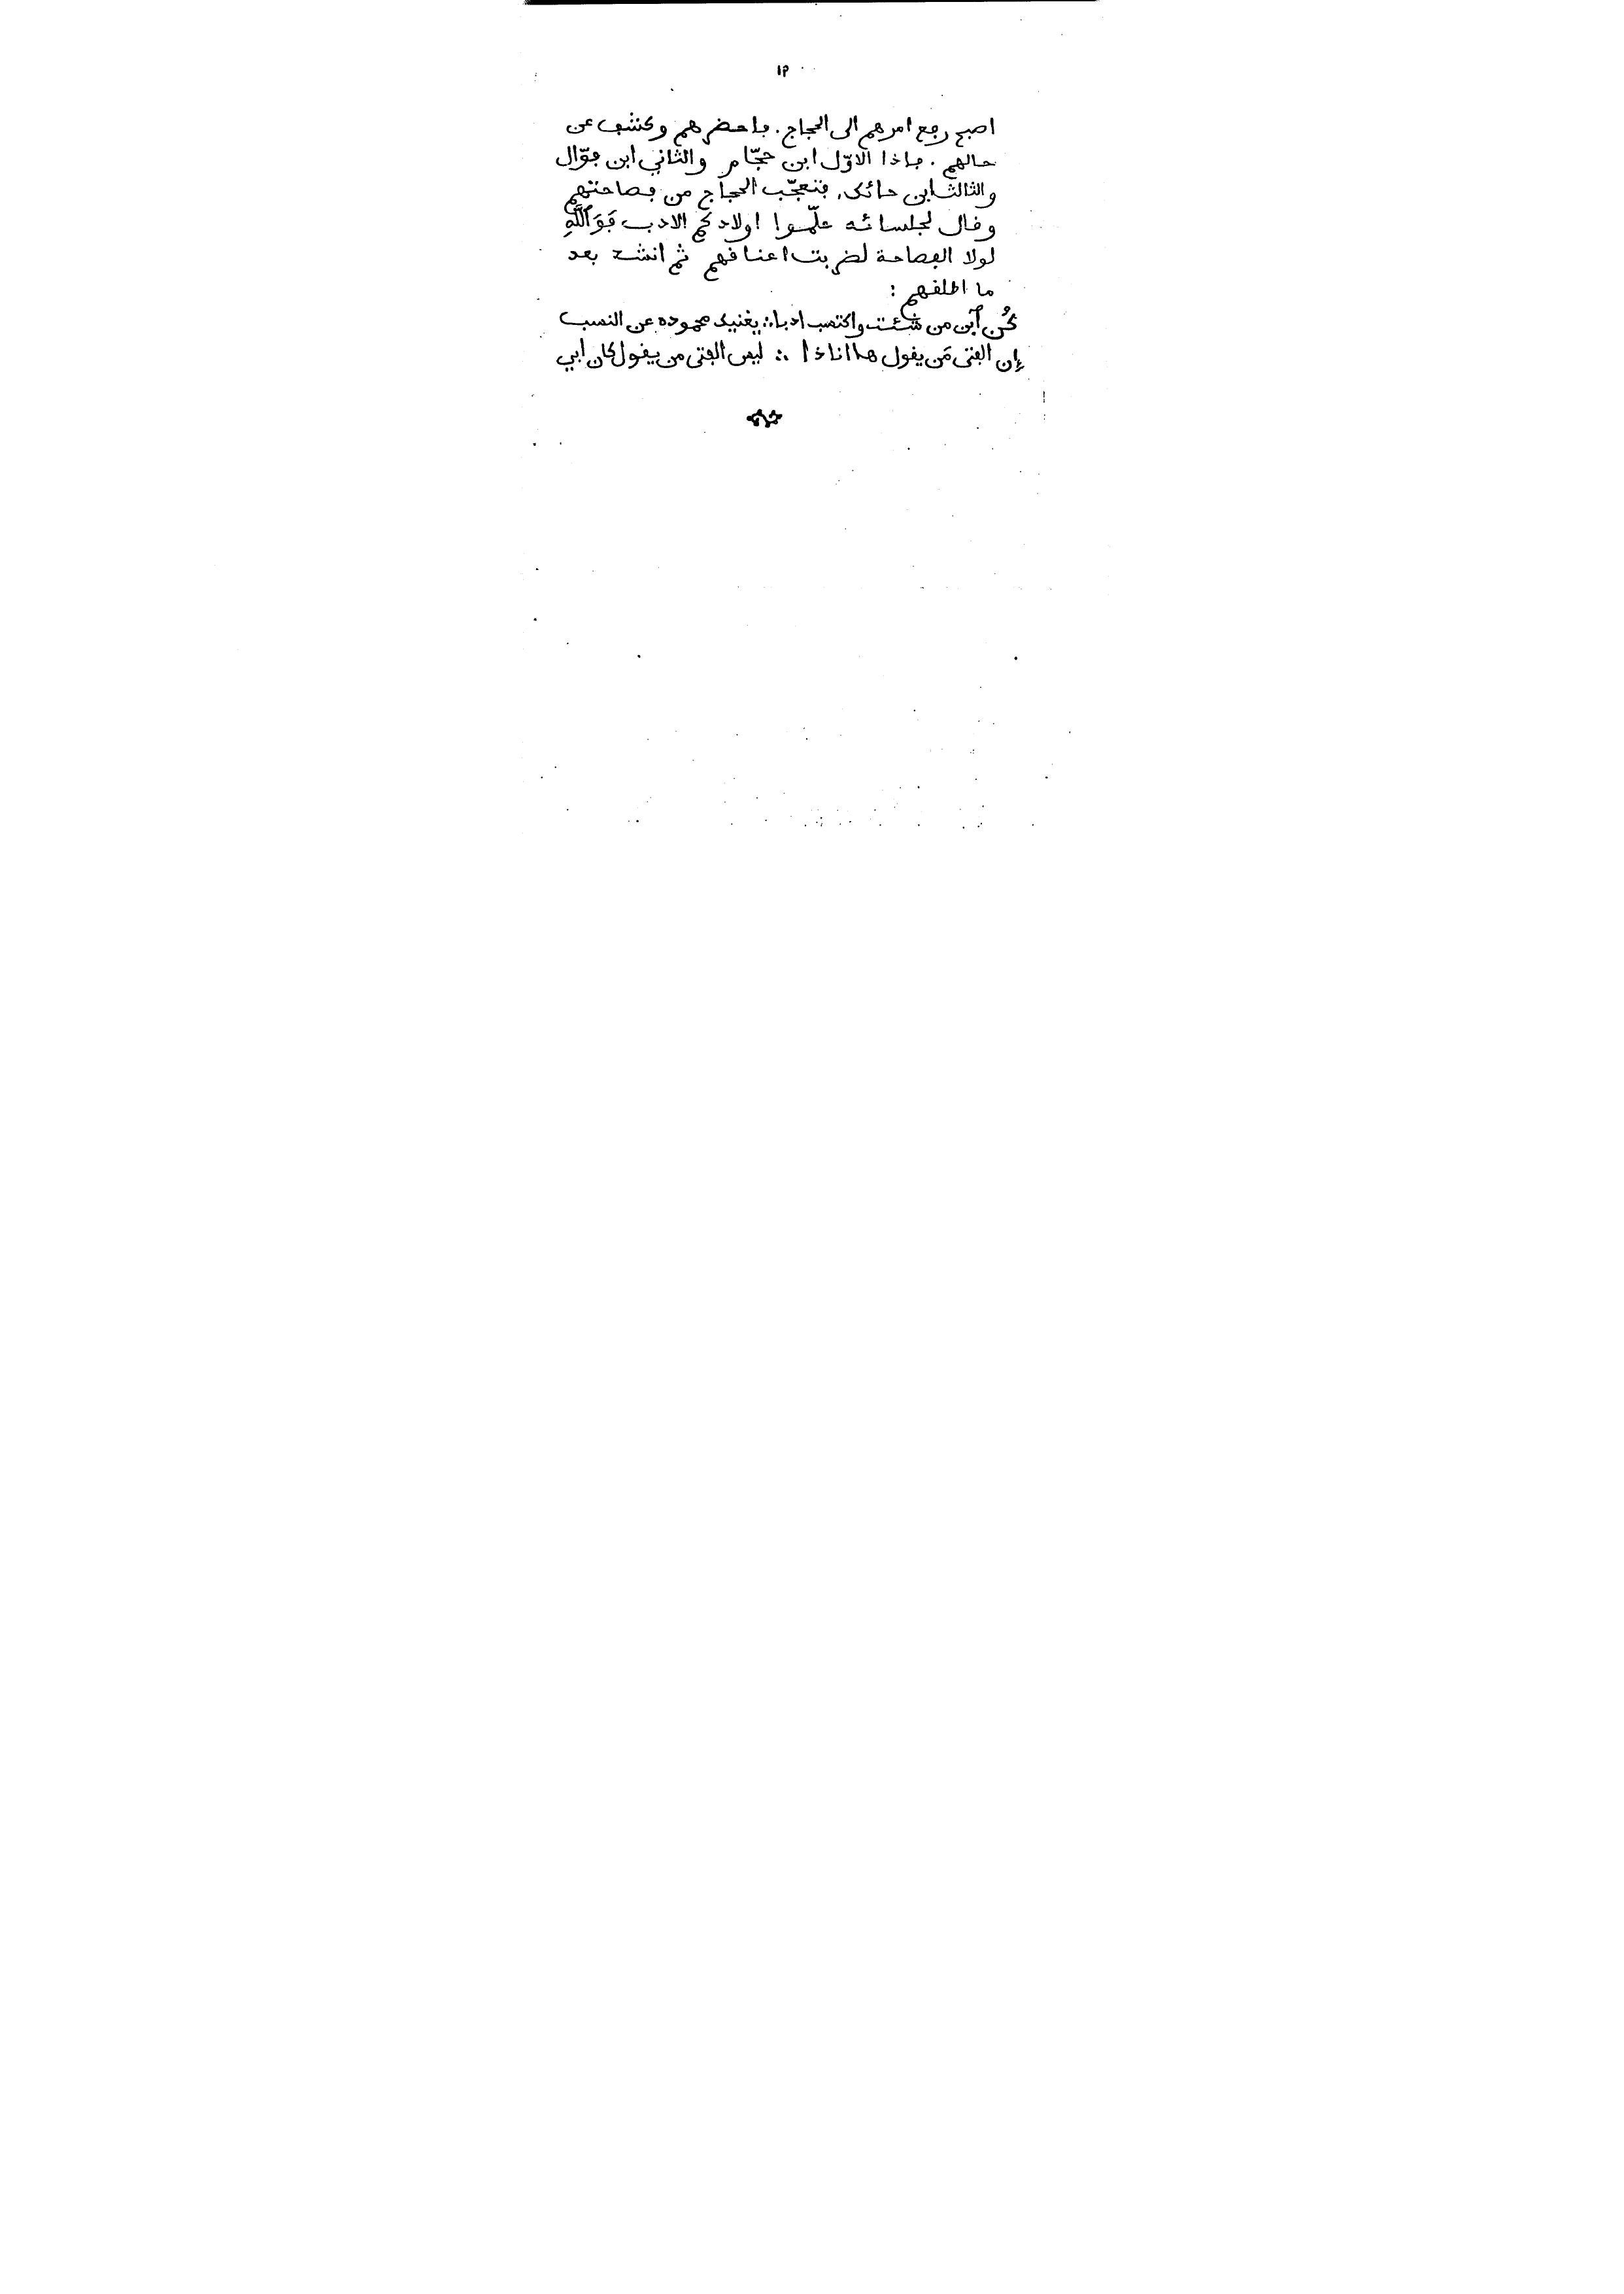 ١٢
اصبح رفع امرهم الى الحجاج. فاحضرهم وكشف عن
حالهم. فاذا الاوّل ابن حجّام والثاني ابن فوّال
والثالث ابن حائك. فتعجّب الحجاج من فصاحتهم
وقال لجلسائه علّموا اولادكم الادب فَوَٱللَّهِ
لولا الفصاحة لضربت اعناقهم ثم انشد بعد
ما اطلقهم :
كُن ٱبن من شئت واكتسب ادبا ∴ يغنيك محموده عن النسب
إن الفتى مَن يقول ها انا ذا ∴ ليس الفتى من يقول كان أبي